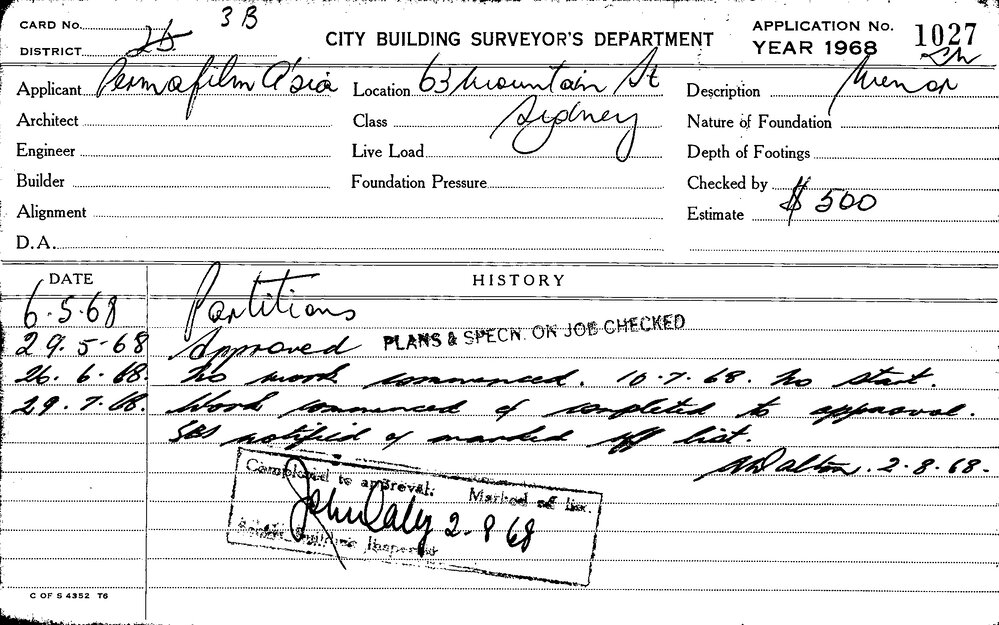 3 B
CARD No.
DISTRICT
CITY BUILDING SURVEYOR'S DEPARTMENT
APPLICATION No. 1027
YEAR 1968
Applicant Permafilm A'sia Location 63 Mountain St Description
Architect Class Sydney Nature of Foundation
Engineer Live Load Depth of Footings
Builder Foundation Pressure Checked by
Alignment Estimate $500
D.A.
DATE HISTORY
6.5.68 Partitions
29.5.68 Approved PLANS & SPECN. ON JOB CHECKED
26.6.68. No work commenced. 10.7.68. No start.
29.7.68. Work commenced & completed to approval.
SBS notified & marked off list.
A Dalton. 2.8.68.
Completed to approval. Marked off list.
John Daly 2.8.68
Senior Building Inspector
C OF S 4352 T6